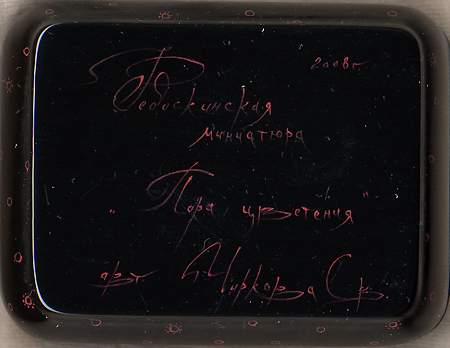 2008г.
Федоскинская
миниатюра
"Пора цветения"
авт. Чиркова С.